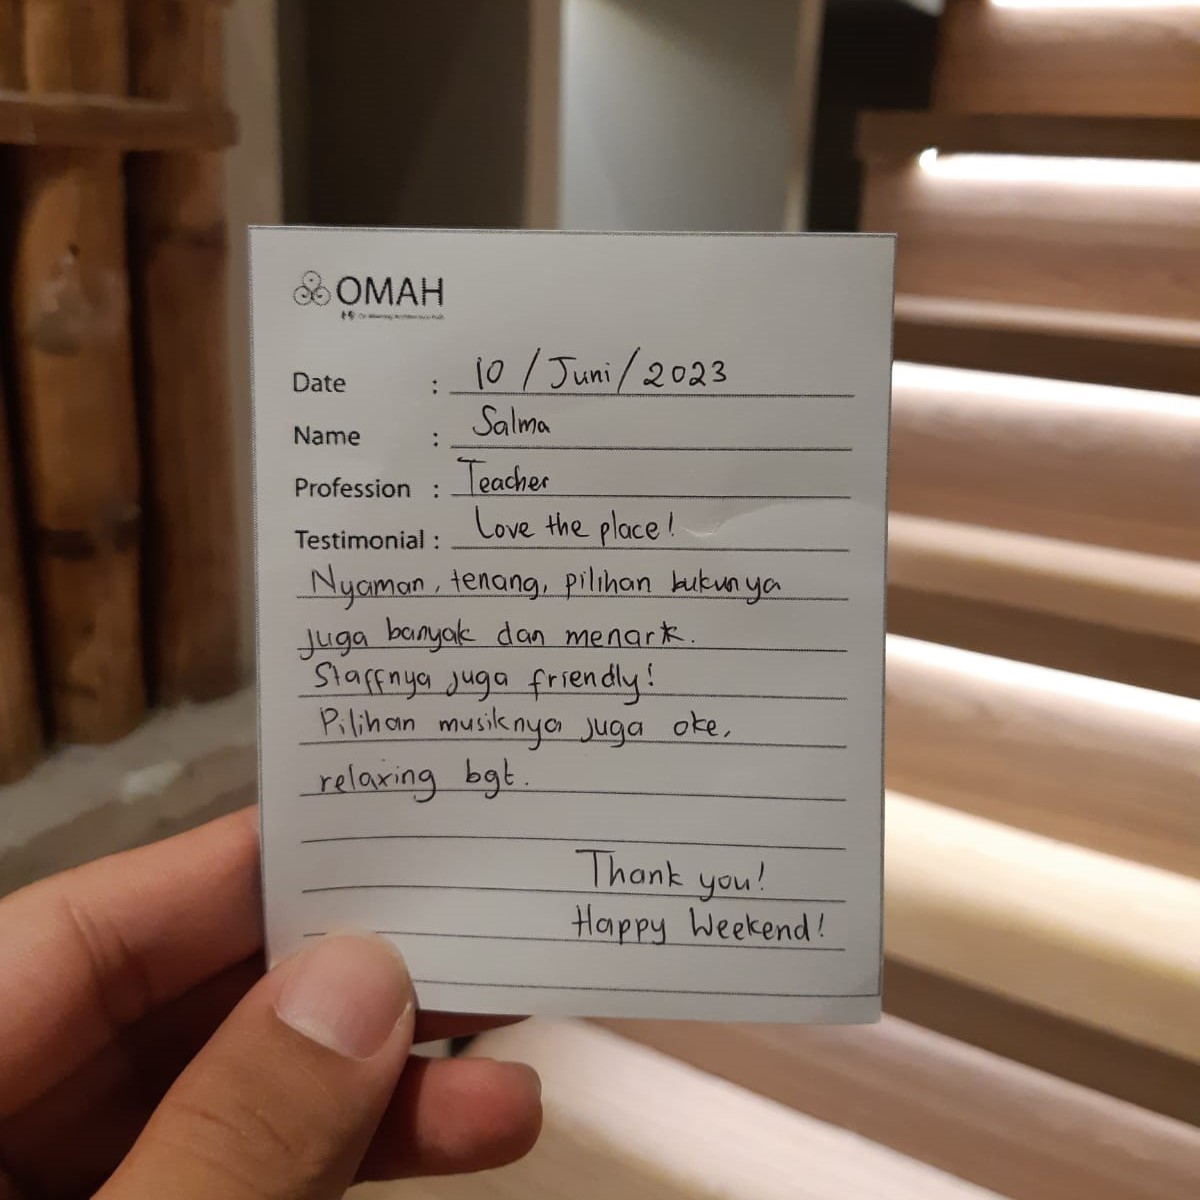 OMAH
Date : 10 / Juni / 2023
Name : Salma
Profession : Teacher
Testimonial : Love the place!
Nyaman, tenang, pilihan bukunya
juga banyak dan menarik.
Staffnya juga friendly!
Pilihan musiknya juga oke,
relaxing bgt.
Thank you!
Happy Weekend!